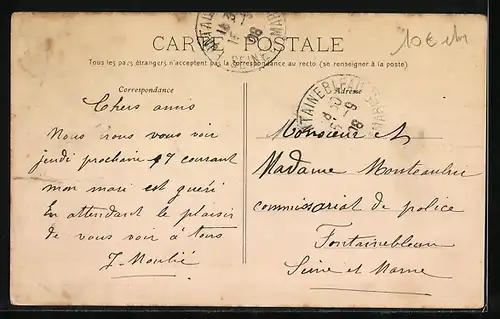 CARTE POSTALE
10€ 
Tous les pays étrangers n'acceptent pas la correspondance au recto (se renseigner à la poste)
Correspondance
Chers amis
Nous irons vous voir
jeudi prochain 17 courant
mon mari est guéri
En attendant le plaisir
de vous voir à tous
J. Moulié
Adresse
Monsieur et
Madame
commissariat de police
Fontainebleau
Seine et Marne
FONTAINEBLEAU